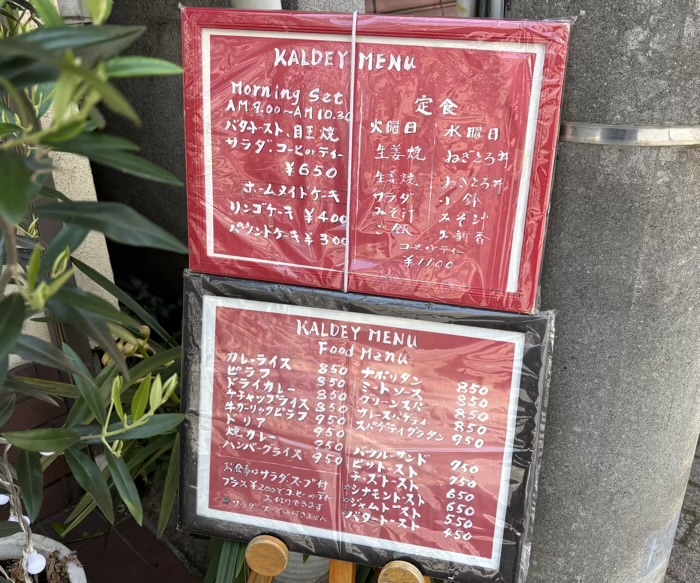 KALDEY MENU
Morning Set
AM 9.00～AM 10.30
バタトースト、目玉焼
サラダ、コーヒorティー
¥650
ホームメイドケーキ
リンゴケーキ ¥400
パウンドケーキ ¥300
定食
火曜日
生姜焼
生姜焼
サラダ
みそ汁
ご飯
水曜日
ねぎとろ丼
ねぎとろ丼
小鉢
みそ汁
お新香
コーヒorティー
¥1100
KALDEY MENU
Food Menu
カレーライス 850
ピラフ 850
ドライカレー 850
ケチャップライス 850
牛ガーリックピラフ 950
ドリア 950
焼カレー 950
ハンバーグライス 950
お食事はサラダ、スープ付
プラス¥200でコーヒorティー
ナポリタン 850
ミートソース 850
グリーンスパ 850
カレースパゲティ 850
スパゲティグラタン 950
バラルーサンド 750
ピットースト 750
チーズトースト 650
シナモントースト 650
ジャムトースト 550
バタートースト 450